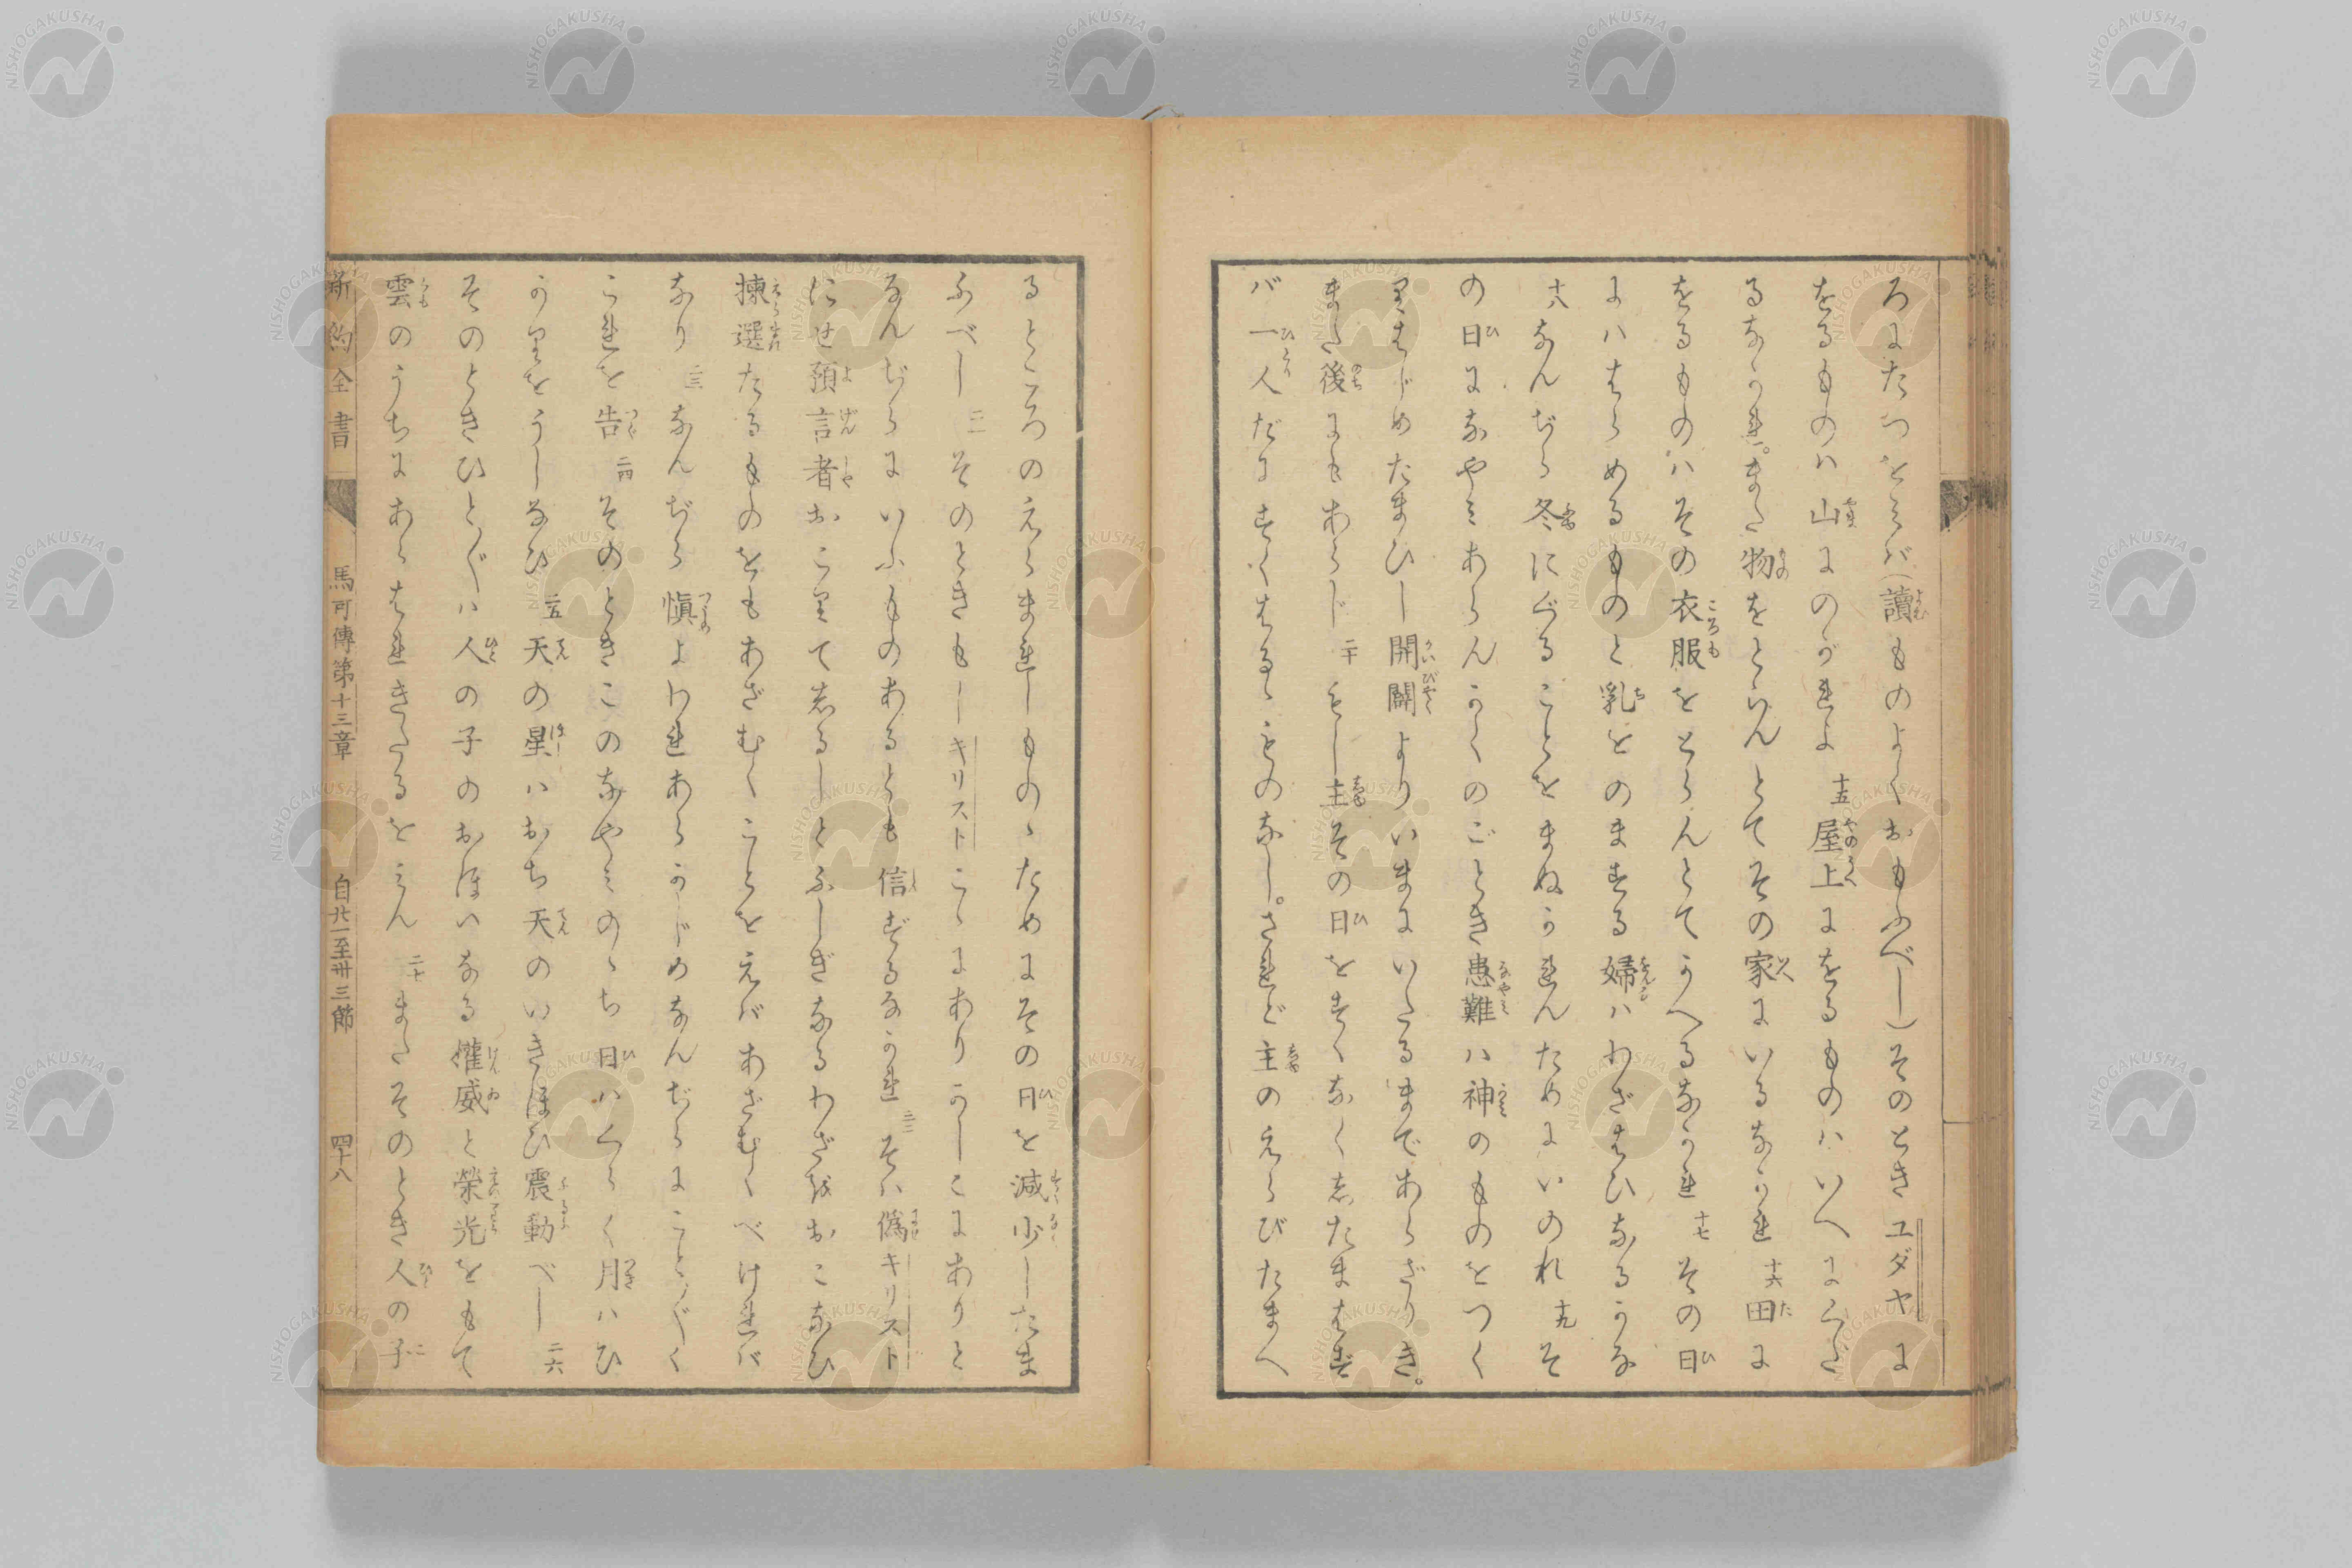 ろにたつをミバ（讀ものよくおもふべし）そのときユダヤに
をるものハ山にのがれよ 十五 屋上にをるものハいへにくだ
るなかれ。また物をとらんとてその家にいるなかれ 十六 田に
をるものハその衣服をとらんとてかへるなかれ 十七 その日
にハはらめるものと乳をのまする婦ハわざはひなるかな
十八 なんぢら冬にぐることをまぬかれんためにいのれ 十九 そ
の日になやミあらんかくのごとき患難ハ神のものをつく
りはじめたまひし開闢よりいまにいたるまであらざりき。
また後にもあらじ 二十 もし主その日をすくなくしたまはず
バ一人だにすくはるゝものなし。されど主のえらびたまへ
るところのえらまれしものゝためにその日を減少したま
ふべし 二一 そのときもしキリストこゝにありかしこにありと
なんぢらにいふものあるとも信ずるなかれ 二二 そハ僞キリスト
にせ預言者おこりてしるしとふしぎなるわざをおこなひ
揀選たるものをもあざむくことをえバあざむくべけれバ
なり 二三 なんぢら愼よわれあらかじめなんぢらにことごとく
これを告 二四 そのときこのなやミのゝち日ハくらく月ハひ
かりをうしなひ 二五 天の星ハおち天のいきほひ震動べし 二六
そのときひとびとハ人の子のおほいなる權威と榮光をもて
雲のうちにあらはれきたるをミん 二七 またそのとき人の子
新約全書 馬可傳第十三章 自廿一至卅三節 四十八
NISHOGAKUSHA